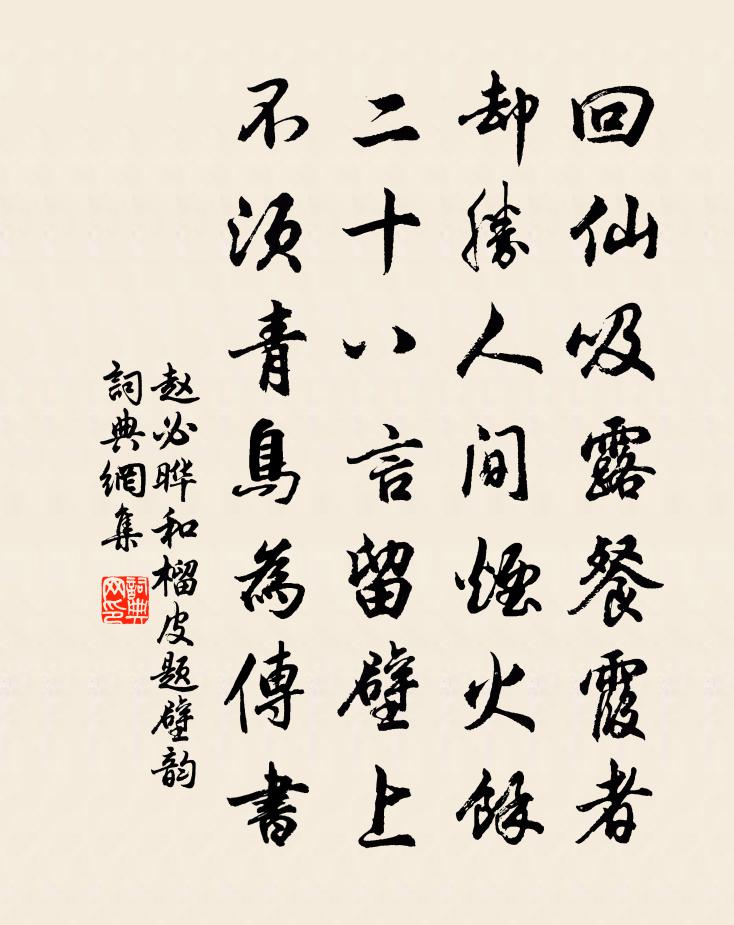 回仙吸露餐霞者
却勝人間煙火餘
二十八言留壁上
不須青鳥為傳書
赵必晔和榴皮題壁韵
詞典網集
詞典網印